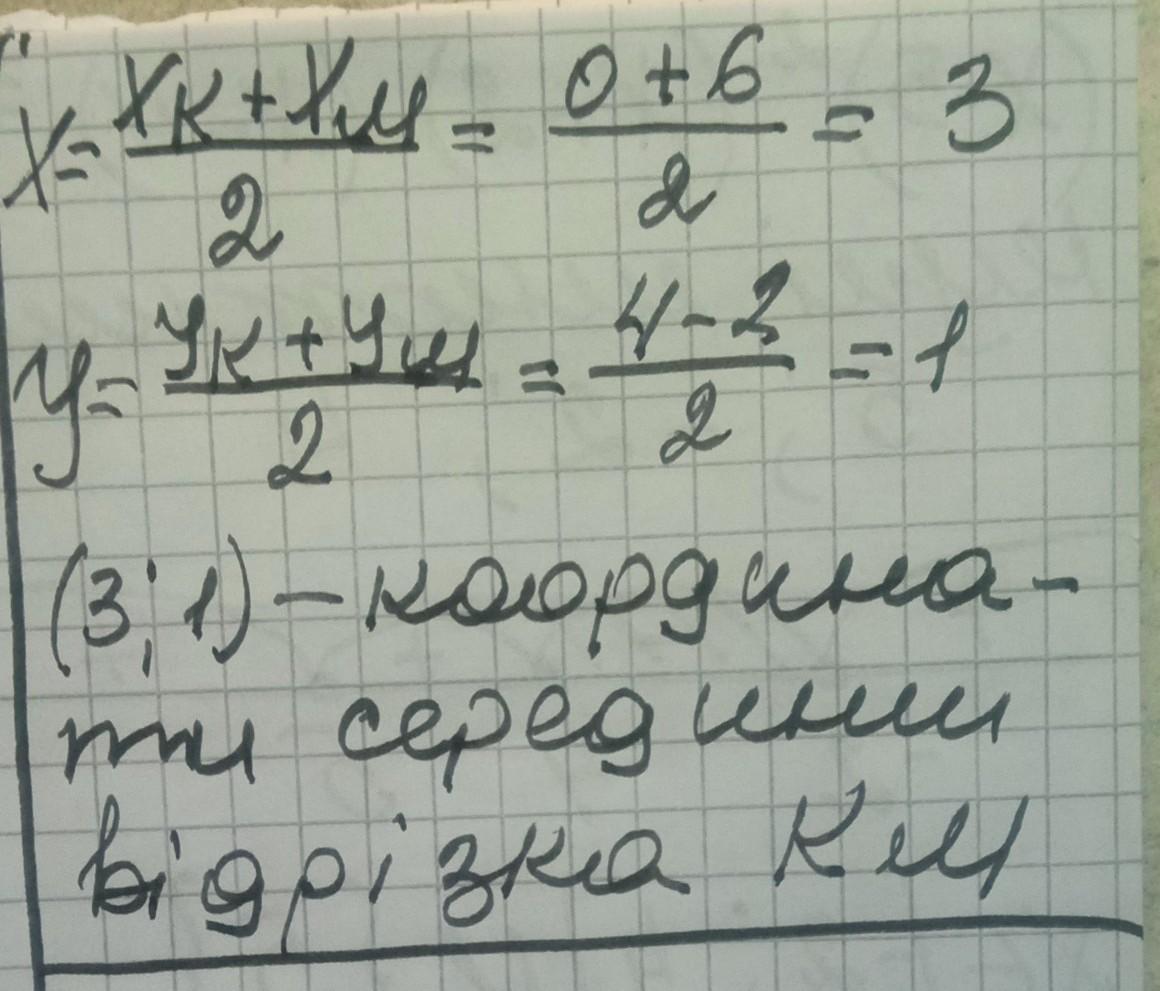 x = (xк + xм)/2 = (0 + 6)/2 = 3
y = (yк + yм)/2 = (4 - 2)/2 = 1
(3; 1) - координа-
ти середини
відрізка КМ